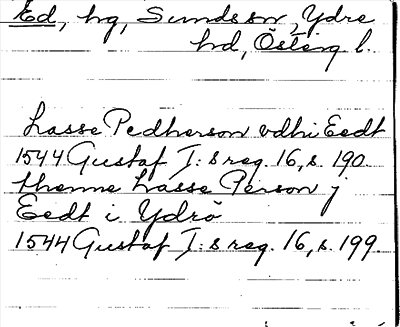 Ed, hg, Sunds sn, Ydre
hd, Österg l.
Lasse Pedherson vdhi Eedt
1544 Gustaf I:s reg. 16, s. 190.
thenne Lasse Person j
Eedt i Ydrö
1544 Gustaf I:s reg. 16, s. 199.